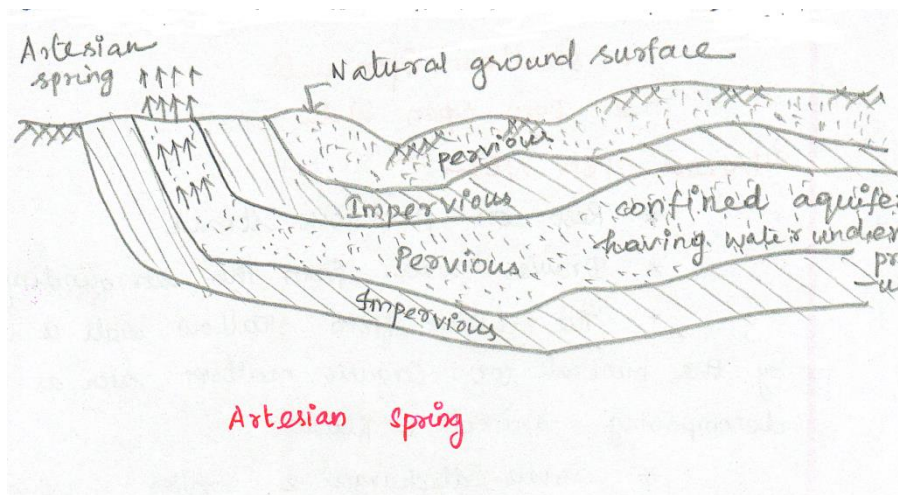 Artesian
spring
Natural ground surface
pervious
Impervious
confined aquife
having water under
pr
-u
Pervious
Impervious
Artesian Spring